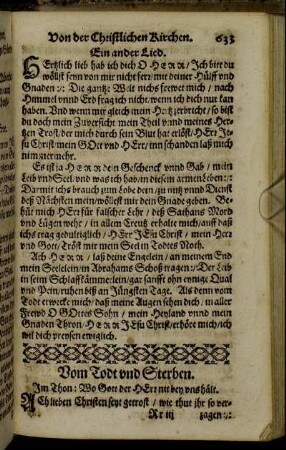 Von der Christlichen Kirchen. 633
Ein ander Lied.
HErtzlich lieb hab ich dich O HErr / Ich bitt du
wöllst seyn von mir nicht fern mit deiner Hülff vnd
Gnaden :/: Die gantze Welt nichs frewet mich / nach
Himmel vnnd Erd frag ich nicht / wenn ich dich nur kan
haben. Vnd wenn mir gleich mein Hertz zerbricht / so bist
du doch mein Zuversicht / mein Theil vnnd meines Her-
tzen Trost / der mich durch sein Blut hat erlöst / HErr Je-
su Christ / mein GOtt vnd HErr / inn schanden laß mich
nimmermehr.
Es ist ja HErr dein Geschenck vnnd Gab / mein
Leib vnd Seel / vnd was ich hab / in diesem armen Leben :/:
Darmit ichs brauch zum Lobe dein / zu nutz vnnd Dienst
deß Nächsten mein / wöllest mir dein Gnade geben. Be-
hüt mich HErr für falscher Lehr / deß Sathans Mord
vnd Lügen wehr / in allem Creutz erhalte mich / auff daß
ichs trag gedultiglich / HErr JEsu Christ / mein Herr
vnd Gott / Tröst mir mein Seel in Todtes Noth.
Ach HErr / laß deine Engelein / an meinem End
mein Seelelein / in Abrahams Schoß tragen :/: Der Leib
in seim Schlaffkämmerlein / gar sanfft ohn eynige Qual
vnd Pein / ruhen biß an Jüngsten Tage. Als denn vom
Todt erwecke mich / daß meine Augen sehen dich / in aller
Frewd O GOttes Sohn / mein Heyland vnnd mein
Gnaden Thron / HERR JEsu Christ / erhöre mich / ich
wil dich preysen ewiglich.
Vom Todt vnd Sterben.
Im Thon: Wo Gott der HErr nit bey vns hält.
ACh lieben Christen seyt getrost / wie thut ihr so ver-
Rr iij zagen :/: